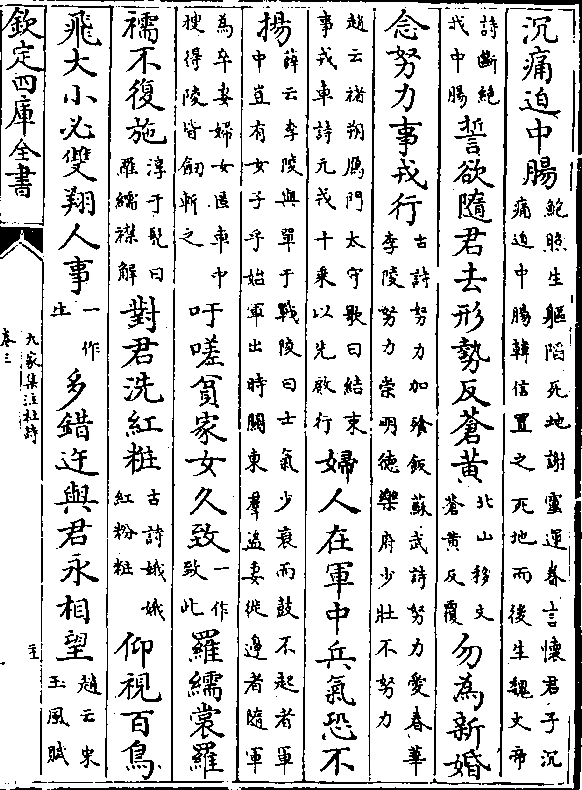 沉痛迫中腸鮑照生軀陷死地謝靈運眷言懷君子沉
痛迫中腸韓信置之死地而後生魏文帝
詩斷絶
我中腸誓欲隨君去形勢反蒼黄北山移文
蒼黄反覆勿為新婚
念努力事戎行古詩努力加飱飯蘇武詩努力愛春華
李陵努力崇明德樂府少壯不努力
趙云褚朔鴈門太守歌曰結束
事戎車詩元戎十乘以先啟行婦人在軍中兵氣恐不
揚薛云李陵與單于戰陵曰士氣少衰而鼓不起者軍
中豈有女子乎始軍出時關東羣盜妻徙邊者隨軍
為卒妻婦女匿車中
搜得陵皆劒斬之吁嗟貧家女久致一作
致此羅繻裳羅
襦不復施淳于髠曰
羅繻襟解對君洗紅粧古詩娥娥
紅粉粧仰視百鳥
飛大小必雙翔人事一作
生多錯迕與君永相望趙云宋
玉風賦
欽定四庫全書
九家集注杜詩
卷三